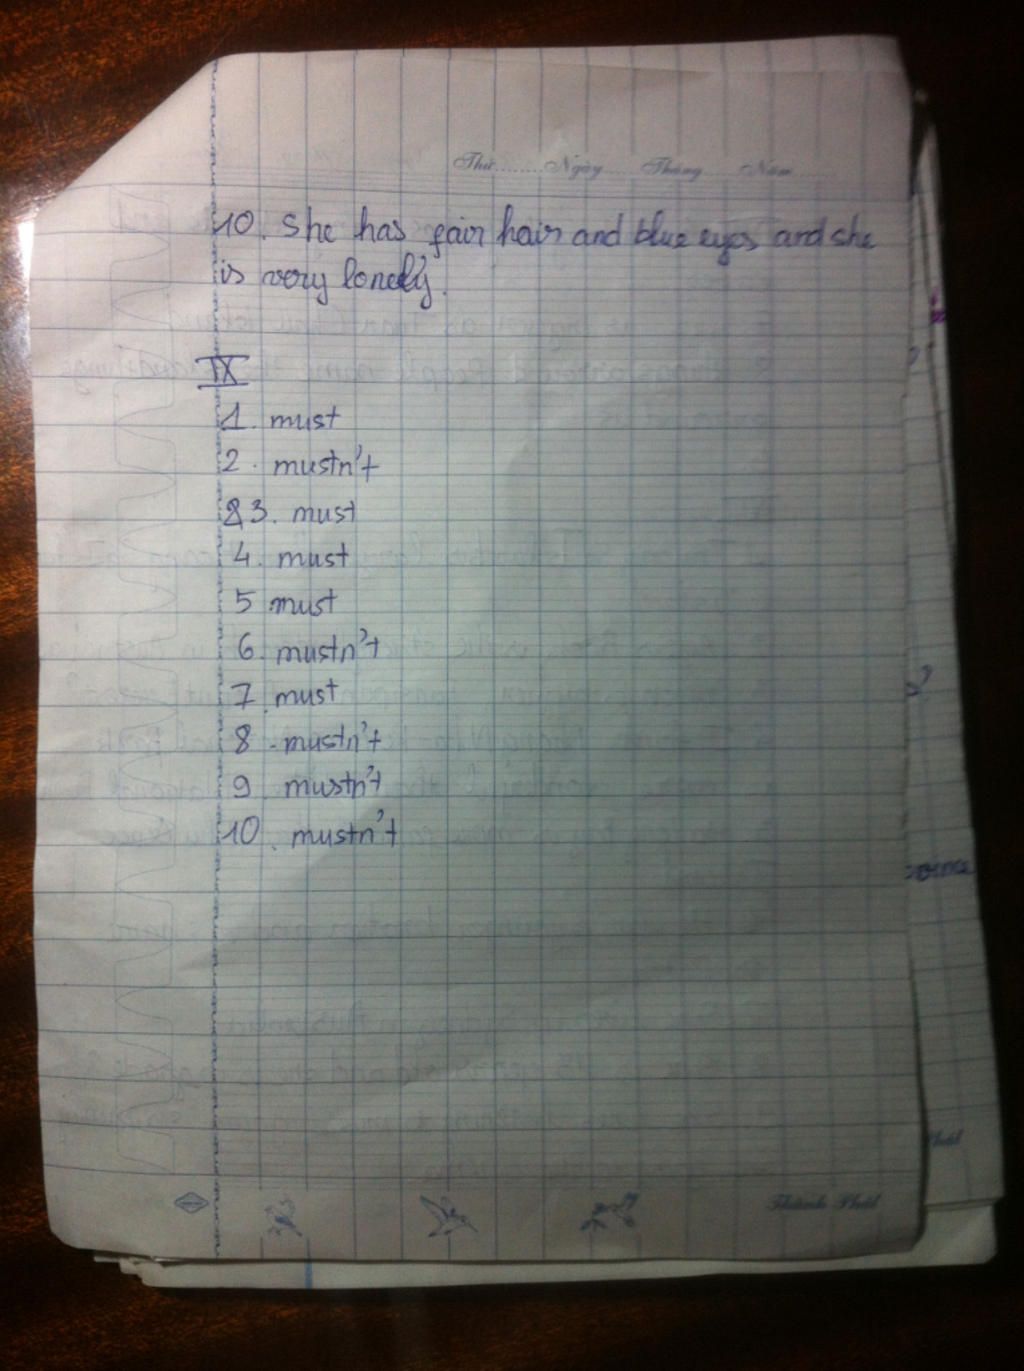 Thứ........Ngày.....Tháng.....Năm.......
10. She has fair hair and blue eyes and she
is very lonely.
IX
1. must
2. mustn't
3. must
4. must
5 must
6. mustn't
7. must
8. mustn't
9. mustn't
10. mustn't
Thành Phát